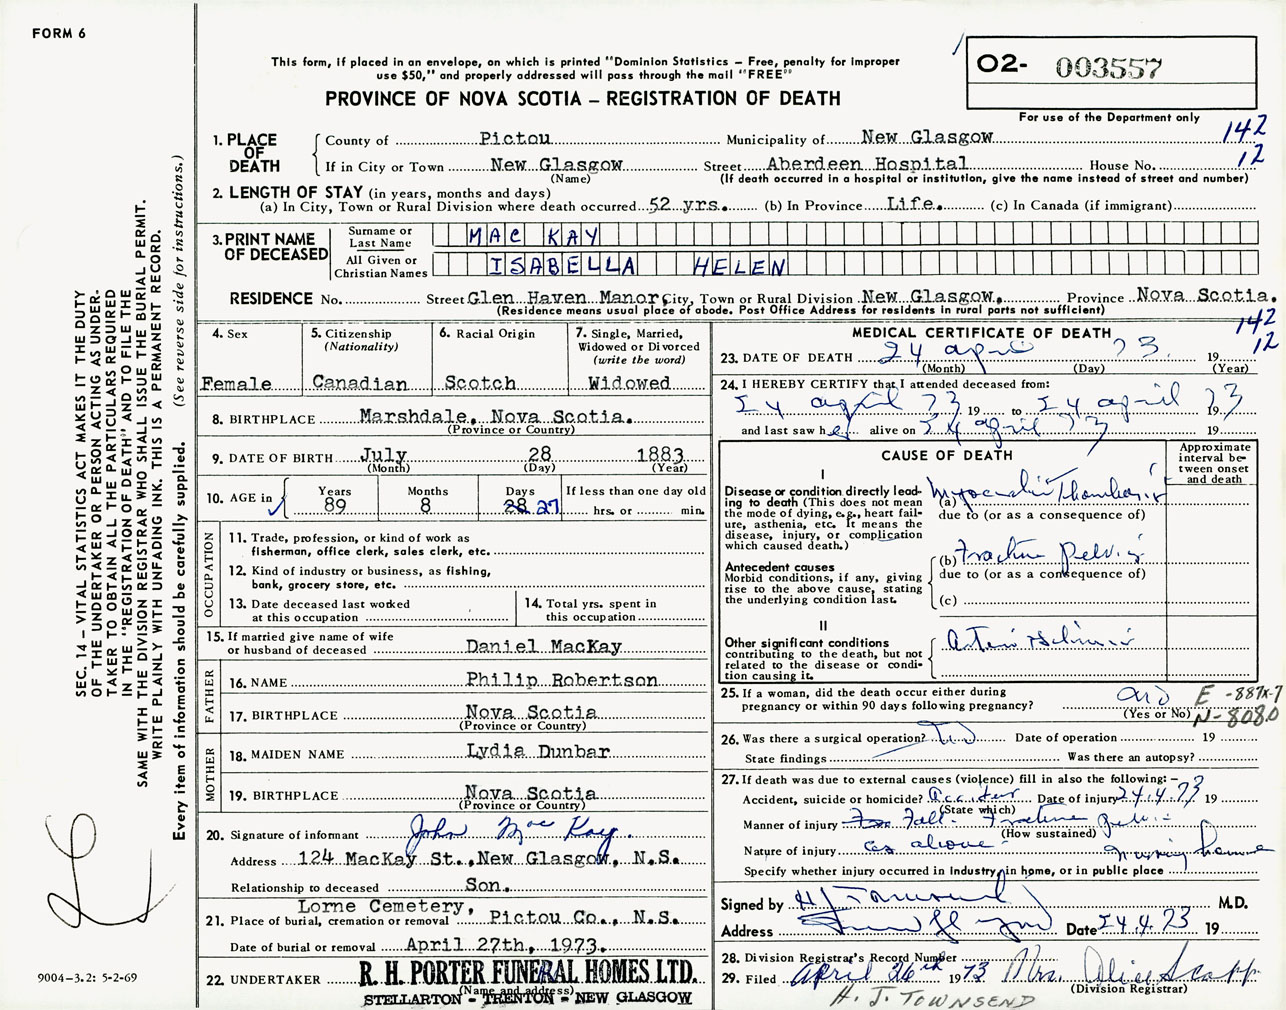 FORM 6
This form, if placed in an envelope, on which is printed "Dominion Statistics – Free, penalty for improper
use $50," and properly addressed will pass through the mail "FREE"
PROVINCE OF NOVA SCOTIA – REGISTRATION OF DEATH
O2- 003557
For use of the Department only
142
12
1. PLACE OF DEATH
County of Pictou Municipality of New Glasgow
If in City or Town New Glasgow Street Aberdeen Hospital House No.
(Name) (If death occurred in a hospital or institution, give the name instead of street and number)
2. LENGTH OF STAY (in years, months and days)
(a) In City, Town or Rural Division where death occurred 52 yrs. (b) In Province Life. (c) In Canada (if immigrant)
3. PRINT NAME OF DECEASED
Surname or Last Name MAC KAY
All Given or Christian Names ISABELLA HELEN
RESIDENCE No. Street Glen Haven Manor, City, Town or Rural Division New Glasgow, Province Nova Scotia.
(Residence means usual place of abode. Post Office Address for residents in rural parts not sufficient)
142
12
4. Sex
Female
5. Citizenship
(Nationality)
Canadian
6. Racial Origin
Scotch
7. Single, Married,
Widowed or Divorced
(write the word)
Widowed
8. BIRTHPLACE Marshdale, Nova Scotia.
(Province or Country)
9. DATE OF BIRTH July 28 1883
(Month) (Day) (Year)
10. AGE in
Years Months Days If less than one day old
89 8 28 27 hrs. or min.
OCCUPATION
11. Trade, profession, or kind of work as
fisherman, office clerk, sales clerk, etc.
12. Kind of industry or business, as fishing,
bank, grocery store, etc.
13. Date deceased last worked
at this occupation
14. Total yrs. spent in
this occupation
15. If married give name of wife
or husband of deceased Daniel MacKay
FATHER
16. NAME Philip Robertson
17. BIRTHPLACE Nova Scotia
(Province or Country)
MOTHER
18. MAIDEN NAME Lydia Dunbar
19. BIRTHPLACE Nova Scotia
(Province or Country)
20. Signature of informant John MacKay
Address 124 MacKay St., New Glasgow, N.S.
Relationship to deceased Son.
Lorne Cemetery,
21. Place of burial, cremation or removal Pictou Co., N.S.
Date of burial or removal April 27th, 1973.
22. UNDERTAKER R. H. PORTER FUNERAL HOMES LTD.
(Name and address)
STELLARTON – TRENTON – NEW GLASGOW
MEDICAL CERTIFICATE OF DEATH
23. DATE OF DEATH 24 april 73 19
(Month) (Day) (Year)
24. I HEREBY CERTIFY that I attended deceased from:
24 april 73 19 to 24 april 19 73
and last saw her alive on 24 april 73 19
CAUSE OF DEATH
Approximate
interval be-
tween onset
and death
I
Disease or condition directly lead-
ing to death (This does not mean
the mode of dying, e.g., heart fail-
ure, asthenia, etc. It means the
disease, injury, or complication
which caused death.)
(a) Myocardial Thrombosis
due to (or as a consequence of)
Antecedent causes
Morbid conditions, if any, giving
rise to the above cause, stating
the underlying condition last.
(b) Fracture pelvis
due to (or as a consequence of)
(c)
II
Other significant conditions
contributing to the death, but not
related to the disease or condi-
tion causing it.
25. If a woman, did the death occur either during
pregnancy or within 90 days following pregnancy? no
(Yes or No)
E -887X-7
N-8080
26. Was there a surgical operation? no Date of operation 19
State findings Was there an autopsy?
27. If death was due to external causes (violence) fill in also the following: –
Accident, suicide or homicide? Accident Date of injury 24.4.73 19
(State which)
Manner of injury Fall - Fracture pelvis
(How sustained)
Nature of injury as above - nursing home
Specify whether injury occurred in Industry, in home, or in public place
Signed by H J Townsend M.D.
Address New Glasgow Date 24.4.73 19
28. Division Registrar's Record Number
29. Filed April 26th 1973 Mrs. Alice Scapp
(Division Registrar)
H. J. TOWNSEND
SEC. 14 – VITAL STATISTICS ACT MAKES IT THE DUTY
OF THE UNDERTAKER OR PERSON ACTING AS UNDER-
TAKER TO OBTAIN ALL THE PARTICULARS REQUIRED
IN THE "REGISTRATION OF DEATH" AND TO FILE THE
SAME WITH THE DIVISION REGISTRAR WHO SHALL ISSUE THE BURIAL PERMIT.
WRITE PLAINLY WITH UNFADING INK. THIS IS A PERMANENT RECORD.
Every item of information should be carefully supplied. (See reverse side for instructions.)
9004–3.2: 5-2-69